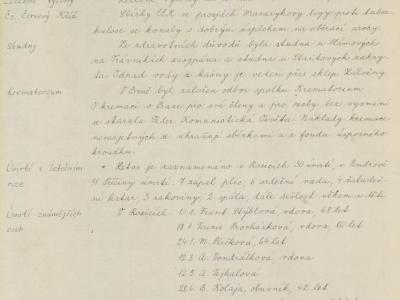 Čs. Červený Kříž
Sbírky ČČK ve prospěch Masarykovy ligy proti tuber-
kulose se konaly s dobrým úspěchem na obvácí
Studny
Ze zdravotních důvodů byla studna u Klímových
na Trávnikách zasypána a studna u Staškových zakry-
ta. Odpad vody z kašny je veden přes sklep Záložny.
krematorium
V Brně byl založen odbor spolku Krematorium
O kremaci v Praze pro své členy a pro osoby bez vyznání
se starala Feder. Komunistická Osvěta. Náklady kremace
nemajetných se uhražují sbírkami a z fondu úsporného
kroužku.
Úmrtí v letošním
roce
Letos je zaznamenáno v Rosicích 30 úmrtí, v
11. Příčiny úmrtí: 7 zápal plic, 6 srdeční vada, 4 žaludeč-
ní katar, 3 rakoviny, 2 spála, dále sešlost věkem a děti.
Úmrtí známějších
osob
V Rosicích: 10.1. Frant. vdova, 68 let
18.1. Terezie Procházková, vdova, 80 let
24.1. M. 64 let
12.3. A. Vondráčková, vdova
12.5. A. Fejtalová
28.6. B. Kolaja, obuvník, 42 let